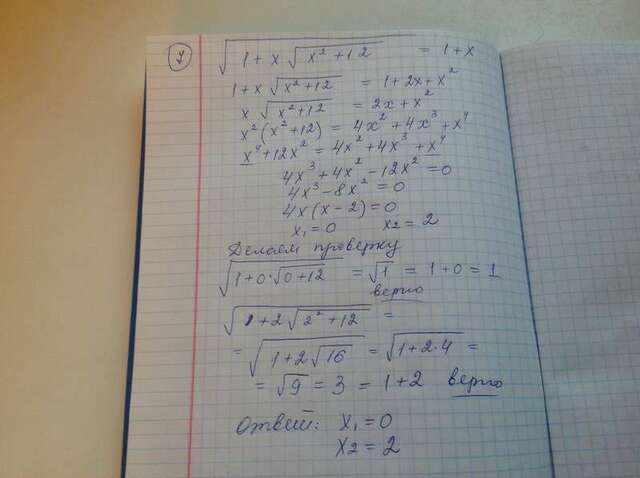 7
√(1 + x √(x² + 12)) = 1 + x
1 + x √(x² + 12) = 1 + 2x + x²
x √(x² + 12) = 2x + x²
x² (x² + 12) = 4x² + 4x³ + x⁴
x⁴ + 12x² = 4x² + 4x³ + x⁴
4x³ + 4x² - 12x² = 0
4x³ - 8x² = 0
4x (x - 2) = 0
x₁ = 0 x₂ = 2
Делаем проверку
√(1 + 0 · √(0 + 12)) = √1 = 1 + 0 = 1
верно
√(1 + 2 √(2² + 12)) =
= √(1 + 2 √16) = √(1 + 2 · 4) =
= √9 = 3 = 1 + 2 верно
Ответ: x₁ = 0
x₂ = 2